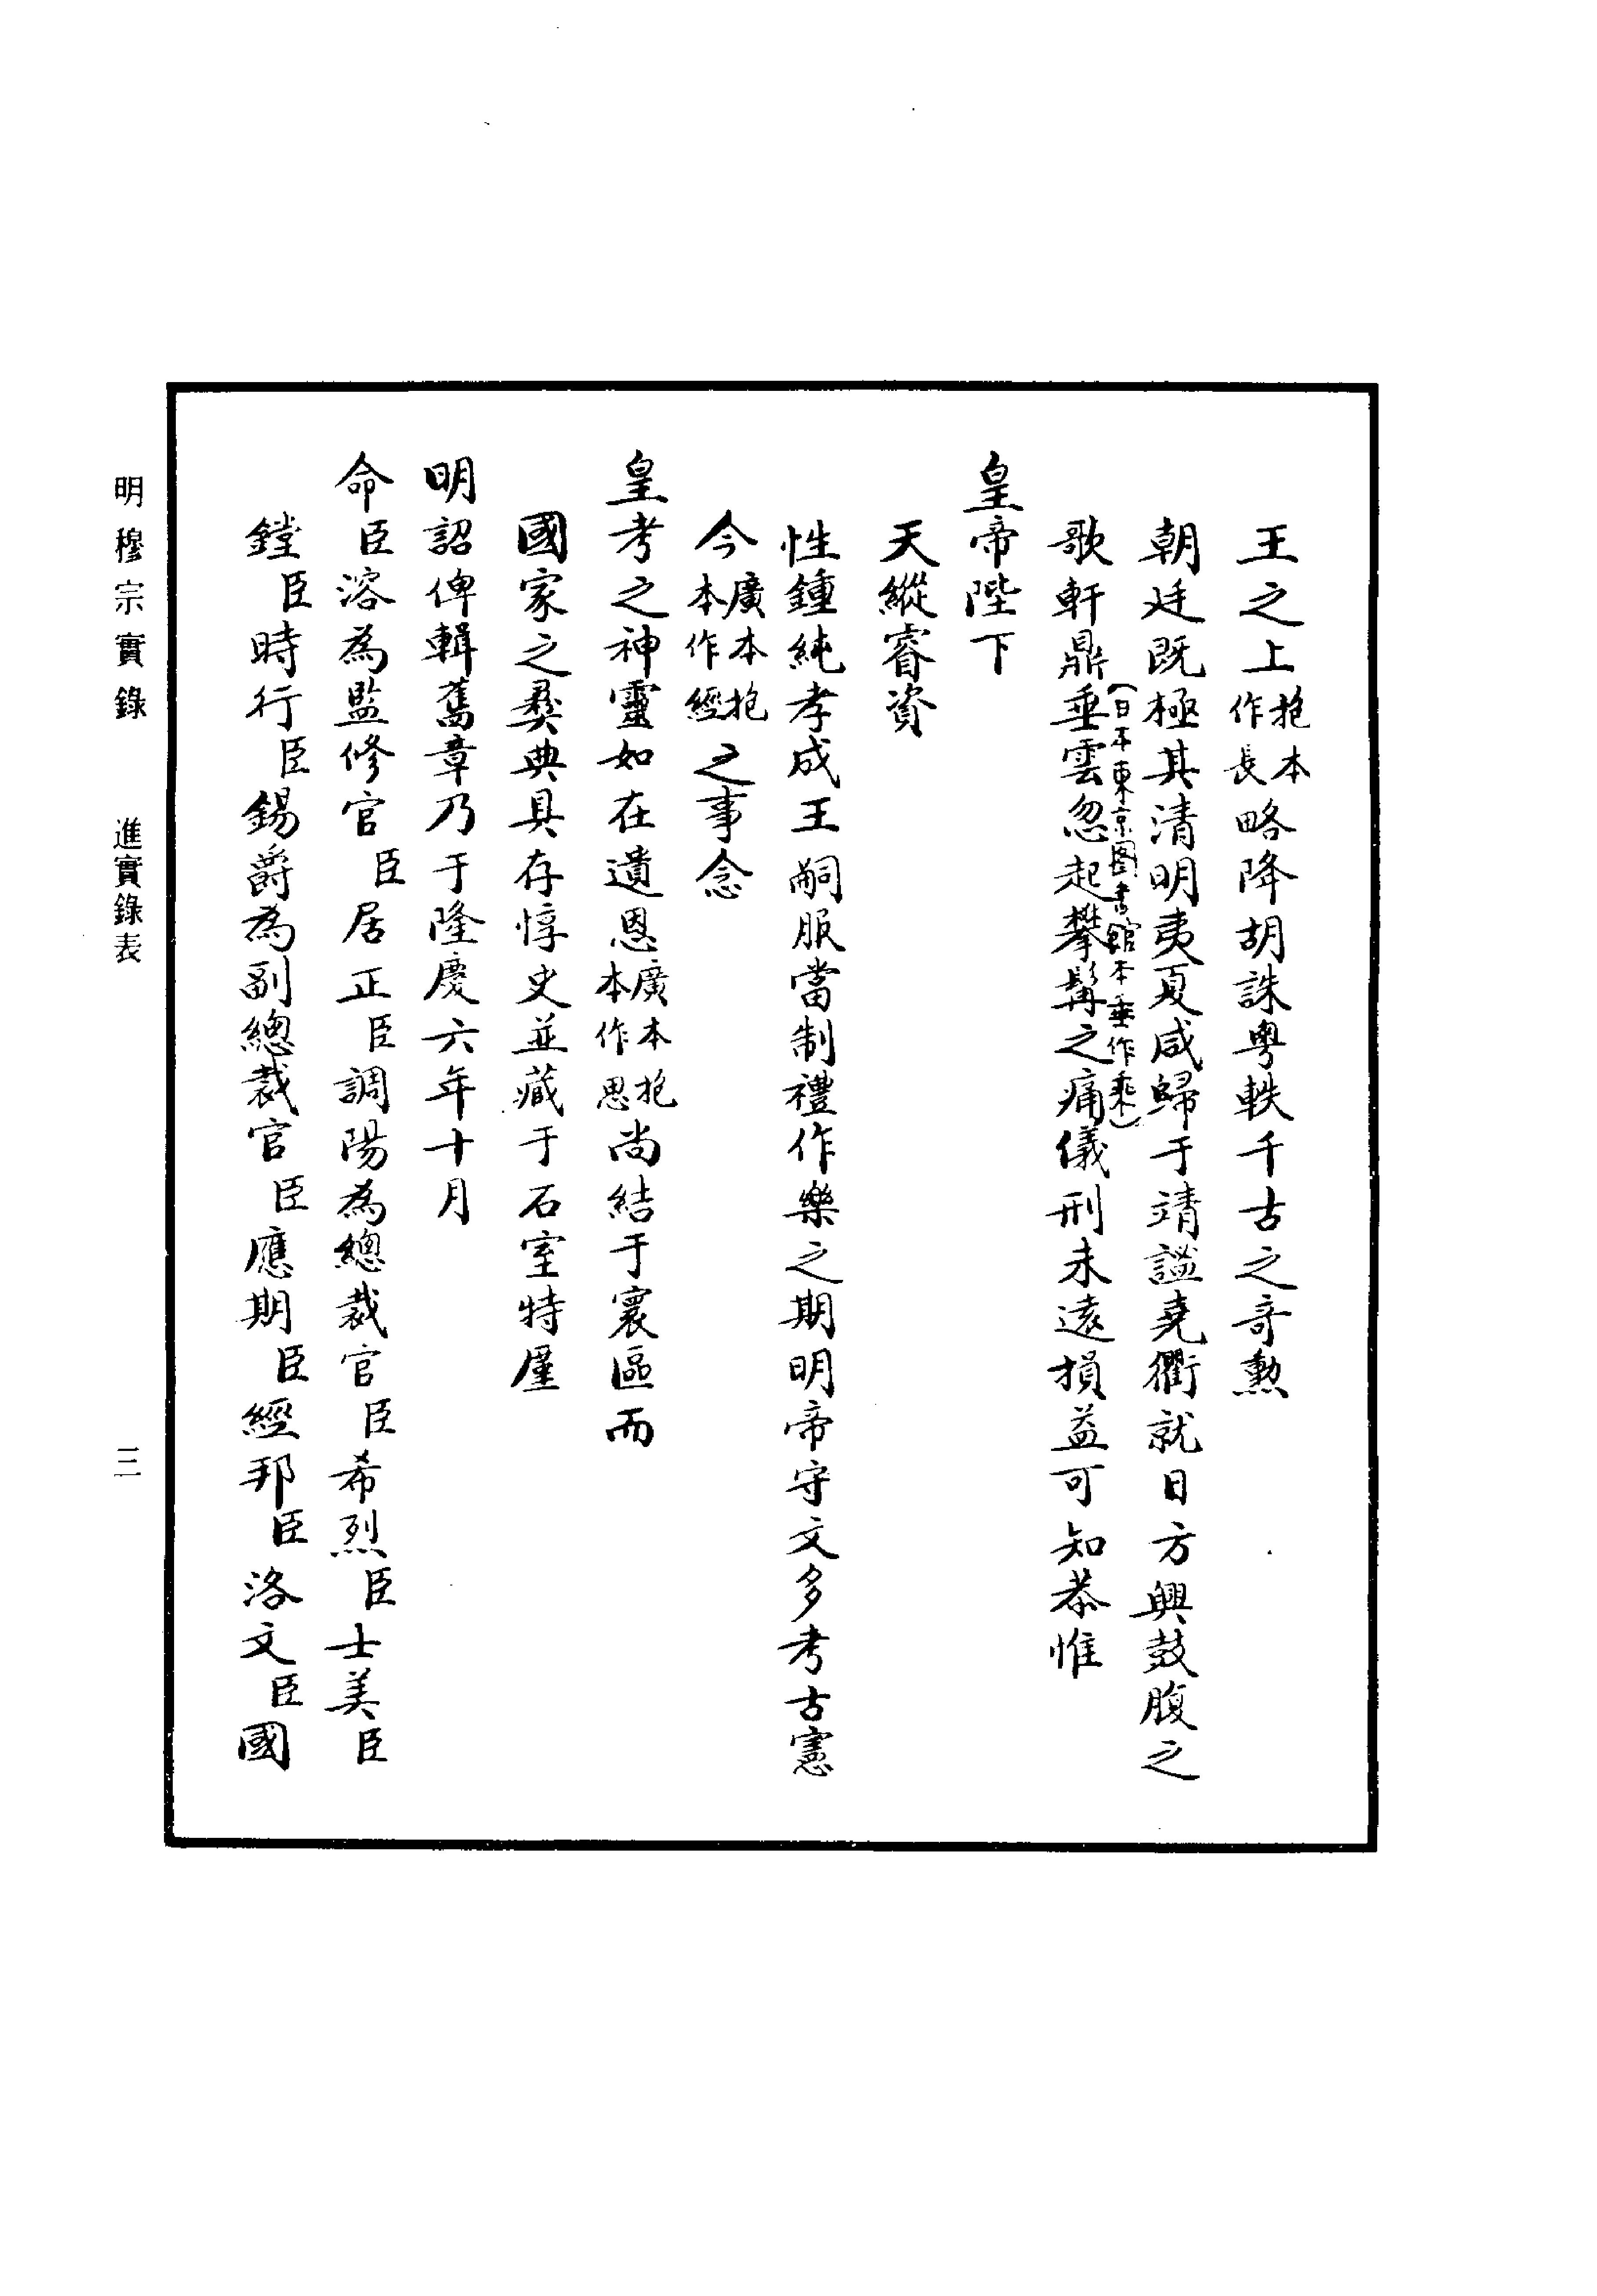 王之上抱本作長略降胡誅粵軼千古之奇勲
朝廷既極其清明夷夏咸歸于靖謐堯衢就日方興鼓腹之
歌軒鼎垂雲忽起攀髯之痛儀刑未遠損益可知恭惟
（日本東京图书館本垂作乘）
皇帝陛下
天縱睿資
性鍾純孝成王嗣服當制禮作樂之期明帝守文多考古憲
今廣本抱本作經之事念
皇考之神靈如在遺恩廣本抱本作思尚結于寰區而
國家之彝典具存惇史並藏于石室特廑
明詔俾輯舊章乃于隆慶六年十月
命臣溶為監修官臣居正臣調陽為總裁官臣希烈臣士美臣
鏜臣時行臣錫爵為副總裁官臣應期臣經邦臣洛文臣國
明穆宗實錄　進實錄表　三